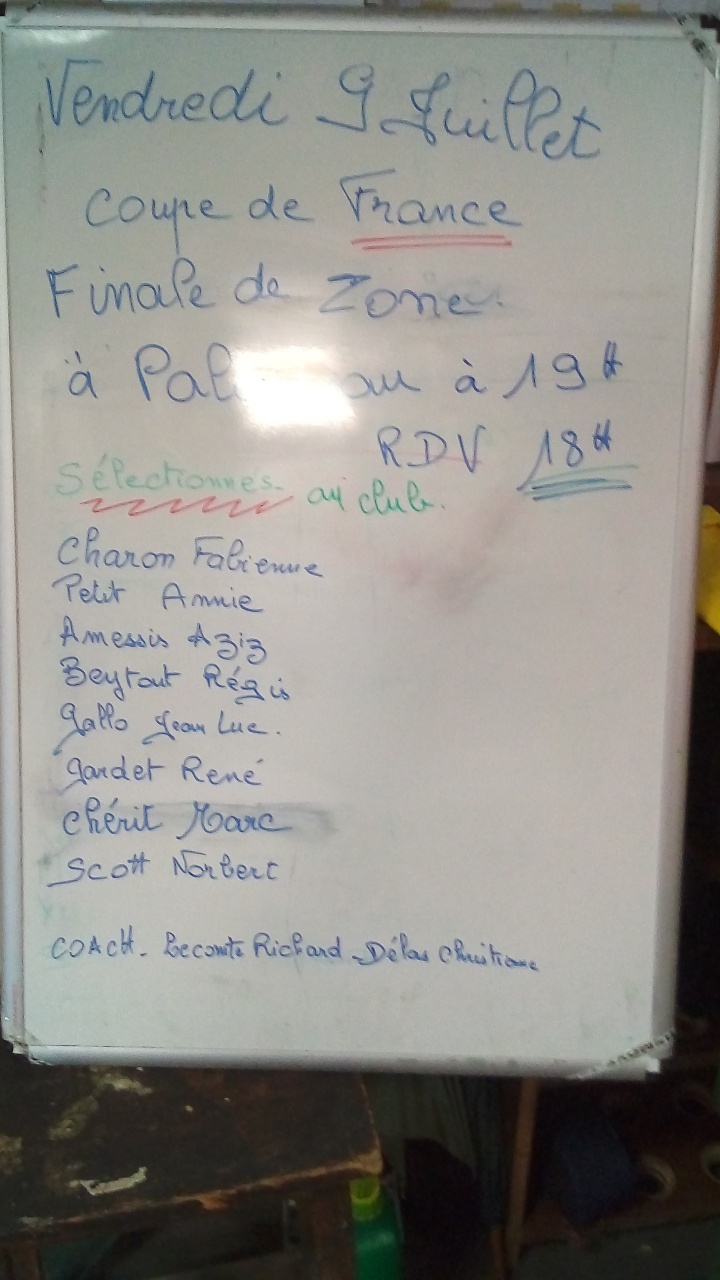 Vendredi 9 Juillet
Coupe de France
Finale de Zone.
à à 19H
RDV 18H
Sélectionnés au club.
Charon Fabienne
Petit Annie
Amessis Aziz
Beytout Régis
Gallo Jean Luc.
Gardet René
Chérit Marc
Scott Norbert
COACH. Lecomte Richard - Délas Christiane